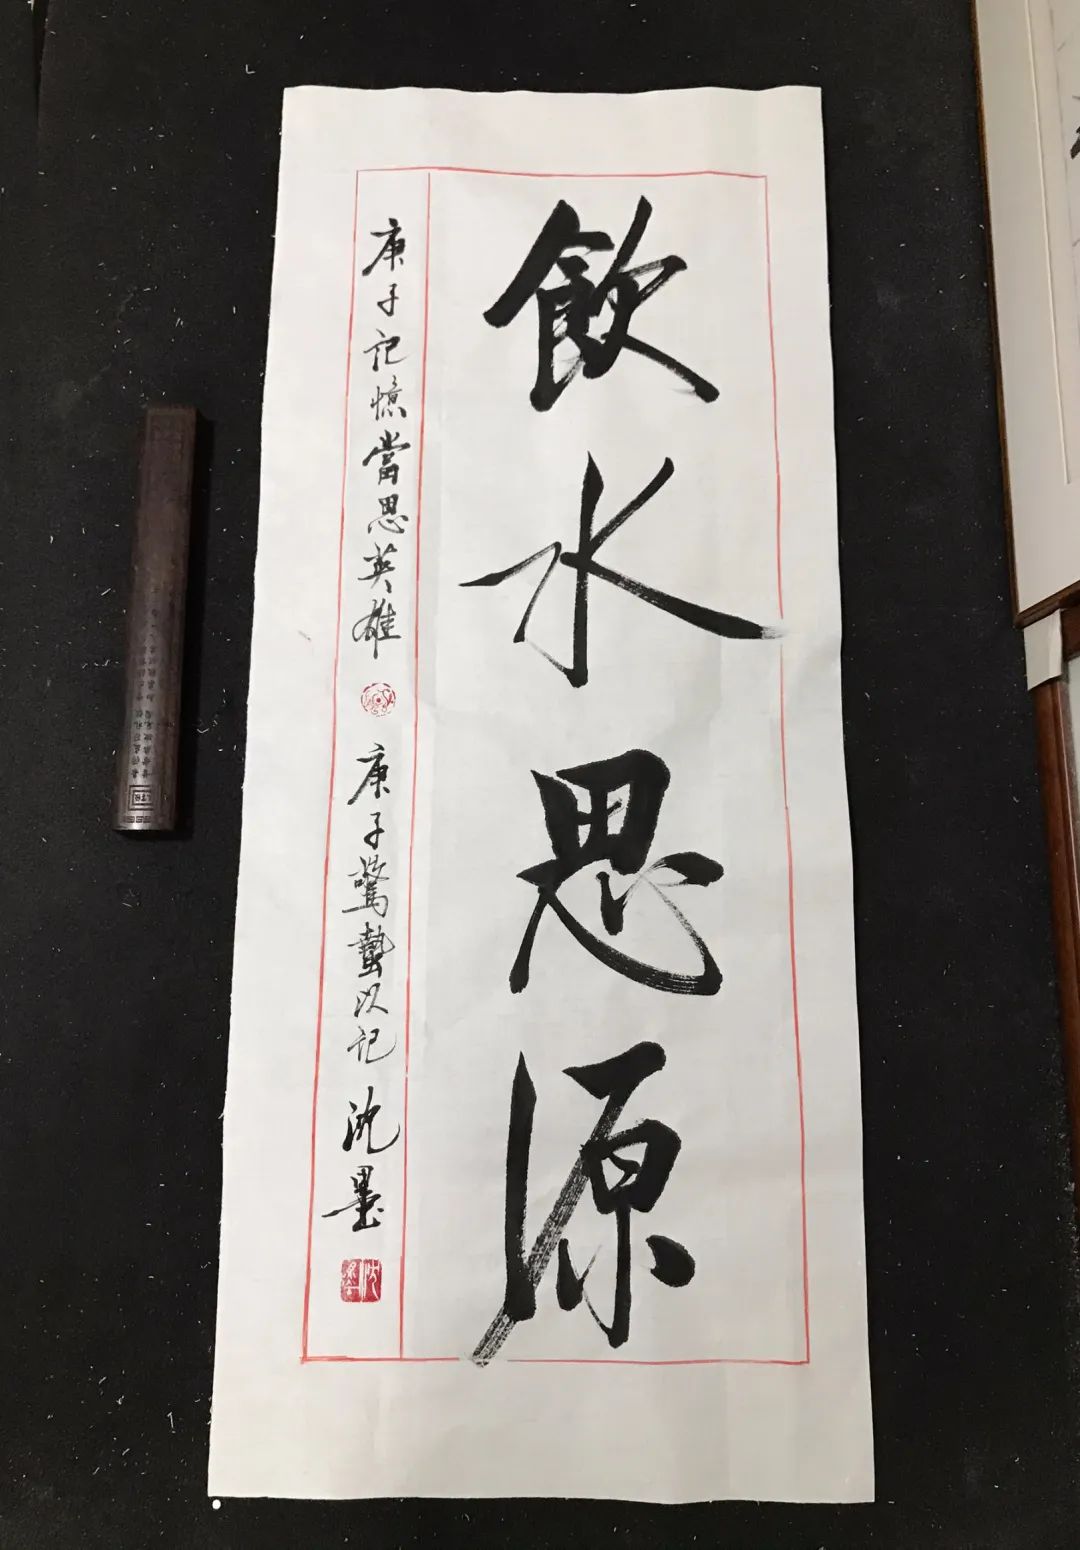 飲水思源
庚子記憶當思英雄
庚子驚蟄以記 沈墨